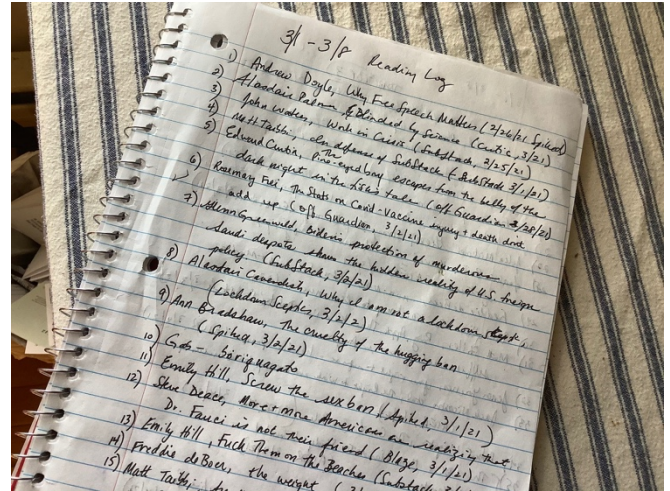 3/1 - 3/8 Reading Log
1) Andrew Doyle, Why Free Speech Matters (2/26/21 Spiked)
2) Alasdair Palmer, Blinded by Science (Critic, 3/21)
3) John Waters, in Crisis (Substack, 2/25/21)
4) Matt Taibbi, In defense of Substack (Substack 3/1/21)
5) Edward Curtin, The Pine-eyed boy escapes from the belly of the
dark night in the tale (Off Guardian 2/28/21)
6) Rosemary Frei, The Stats on Covid-Vaccine injury + death don't
add up (Off Guardian, 3/2/21)
7) Glenn Greenwald, Biden's protection of murderous
Saudi despots shows the hidden reality of U.S. foreign
policy (Substack, 3/2/21)
8) Alasdair Cavendish, Why I am not a lockdown skeptic,
(Lockdown Sceptic, 3/2/21)
9) Ann Bradshaw, The cruelty of the hugging ban
(Spiked, 3/2/21)
10) Gab -
11) Emily Hill, Screw the sex ban (Spiked, 3/1/21)
12) Steve Deace, More + more Americans are realizing that
Dr. Fauci is not their friend (Blaze, 3/1/21)
13) Emily Hill, Fuck Them on the Beaches (Substack, 3/
14) Freddie deBoer, the weight (3/
15) Matt Taibbi,